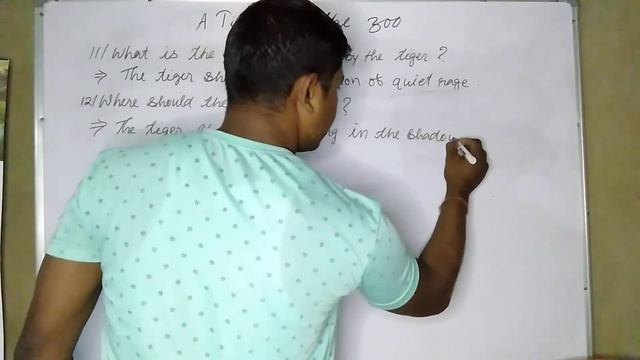 A Ti the zoo
11/ What is the by the tiger ?
⇒ The tiger sh ion of quiet rage .
12/ Where should the ?
⇒ The tiger g in the shadow